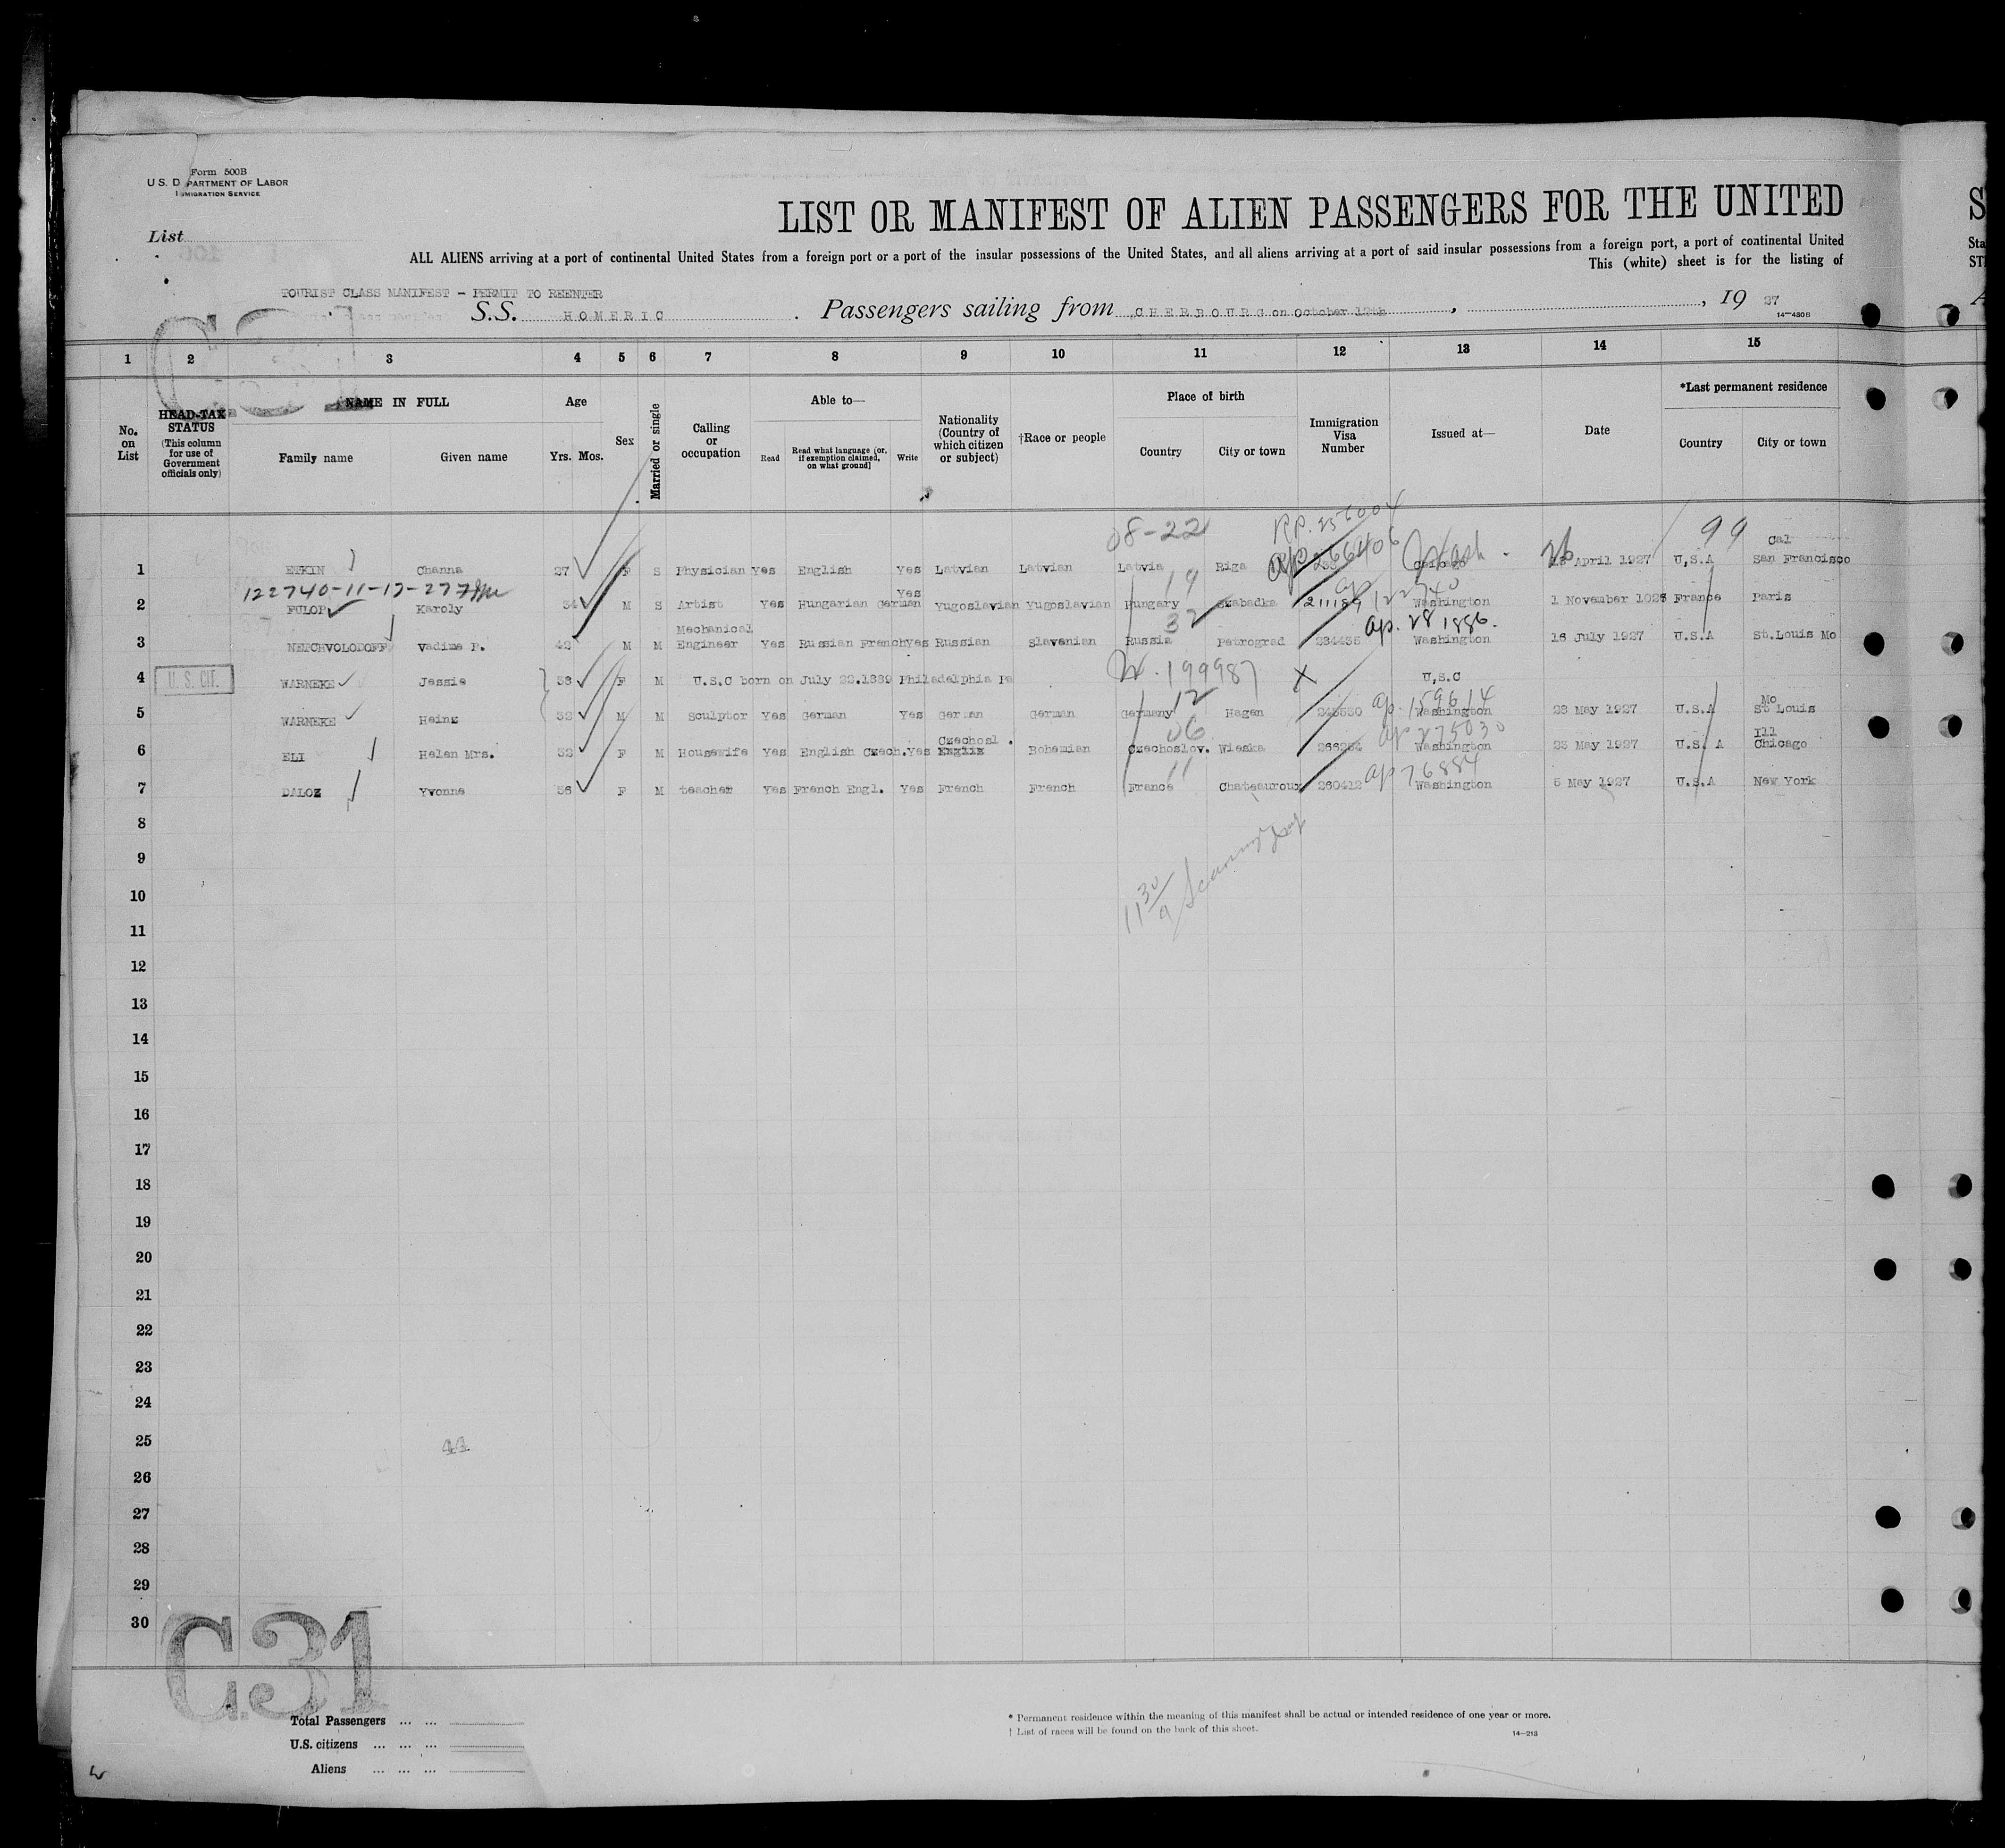 Form 500B
U.S. DEPARTMENT OF LABOR
IMMIGRATION SERVICE
LIST OR MANIFEST OF ALIEN PASSENGERS FOR THE UNITED
List
ALL ALIENS arriving at a port of continental United States from a foreign port or a port of the insular possessions of the United States, and all aliens arriving at a port of said insular possessions from a foreign port, a port of continental United
This (white) sheet is for the listing of
TOURIST CLASS MANIFEST - PERMIT TO REENTER
S.S. HOMERIC. Passengers sailing from CHERBOURG on October 12th, 19 27
14-430B
1 2 3 4 5 6 7 8 9 10 11 12 13 14 15
No. on List
HEAD-TAX STATUS (This column for use of Government officials only)
NAME IN FULL
Family name Given name
Age
Yrs. Mos.
Sex
Married or single
Calling or occupation
Able to—
Read Read what language [or, if exemption claimed, on what ground] Write
Nationality (Country of which citizen or subject)
†Race or people
Place of birth
Country City or town
Immigration Visa Number
Issued at—
Date
*Last permanent residence
Country City or town
08-22 RP. 99
ap 266406 Wash. 26 Cal
1 ETKIN Channa 27 F S Physician Yes English Yes Latvian Latvian Latvia Riga April 1927 U,S.A San Francisco
122740-11-17-27 19 ap 122740
2 FULOP Karoly 34 M S Artist Yes Hungarian German Yes Yugoslavian Yugoslavian Hungary Szabadka 211189 Washington 1 November France Paris
32 ap. 281886.
3 NETCHVOLODOFF Vadime P. 42 M M Mechanical Engineer Yes Russian French Yes Russian Slavenian Russia Petrograd 234435 Washington 16 July 1927 U.S.A St.Louis Mo
4 U. S. CIT. WARNEKE Jessie 38 F M U.S.C born on July 22.1889 Philadelphia Pa 199987 X U,S.C
12 ap. 159614 Mo
5 WARNEKE Heinz 32 M M Sculptor Yes German Yes German German Germany Hagen Washington 23 May 1927 U.S.A St Louis
06 ap 275030 Ill
6 ELI Helen Mrs. 32 F M Housewife Yes English Czech. Yes Czechosl. Bohemian Czechoslov. Wieska Washington 23 May 1927 U.S. A Chicago
11 ap 76884
7 DALOZ Yvonne 36 F M teacher Yes French Engl. Yes French French France Chateauroux 260412 Washington 5 May 1927 U.S.A New York
8
9
10
11
12
13
14
15
16
17
18
19
20
21
22
23
24
25 44
26
27
28
29
30
C.31
Total Passengers ... ...
U.S. citizens ... ... ...
Aliens ... ... ...
* Permanent residence within the meaning of this manifest shall be actual or intended residence of one year or more.
† List of races will be found on the back of this sheet.
14-213